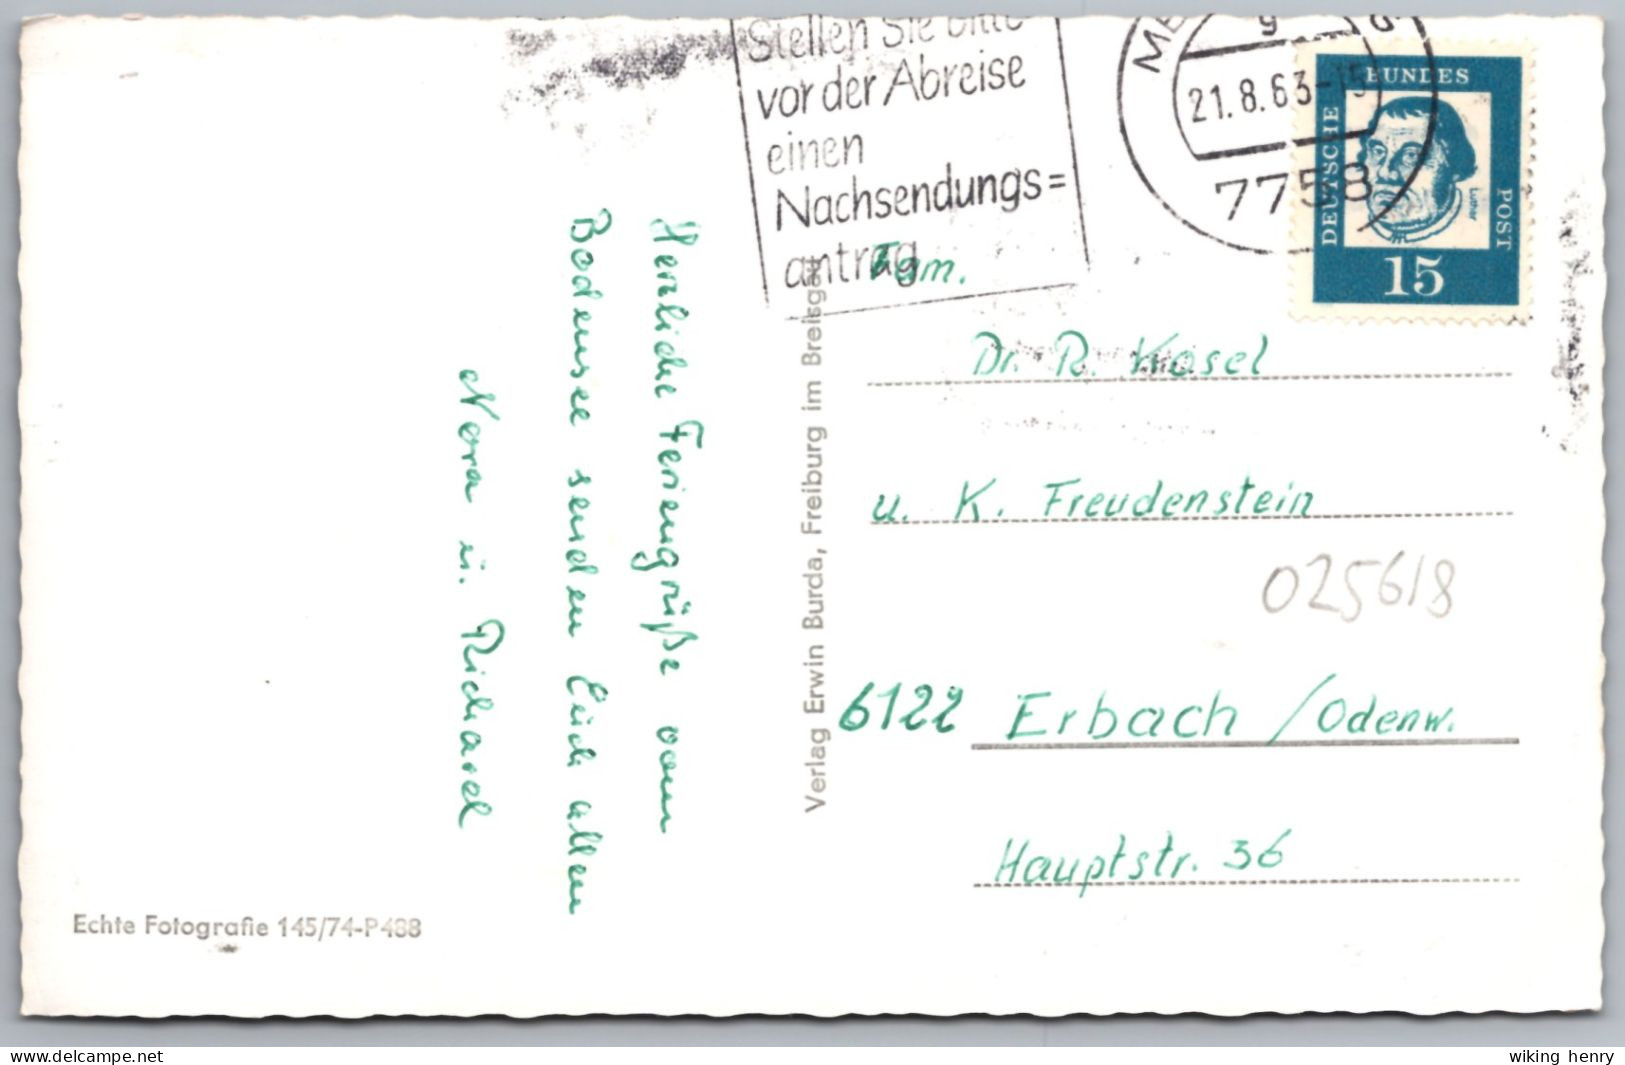 Stellen Sie bitte
vor der Abreise
einen
Nachsendungs=
antrag
21.8.63-15
7758
DEUTSCHE
BUNDES
POST
Luther
15
Herzliche Feriengrüße vom
Bodensee senden Euch allen
Nora u. Richard
Verlag Erwin Burda, Freiburg im Breisgau
Fam.
Dr. R. Kosel
u. K. Freudenstein
025618
6122 Erbach / Odenw.
Hauptstr. 36
Echte Fotografie 145/74-P488
www.delcampe.net
wiking henry